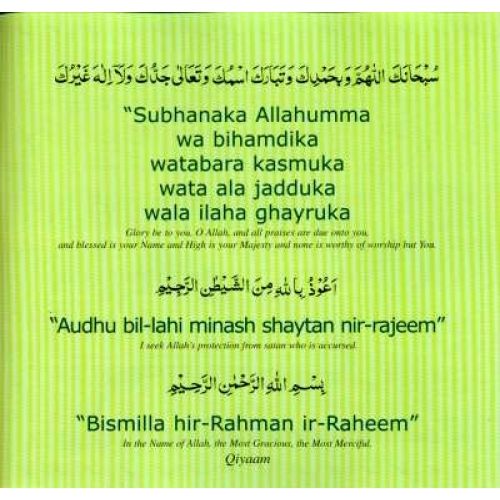 سُبْحَانَكَ اللّٰهُمَّ وَبِحَمْدِكَ وَتَبَارَكَ اسْمُكَ وَتَعَالٰى جَدُّكَ وَلَآ اِلٰهَ غَيْرُكَ
“Subhanaka Allahumma
wa bihamdika
watabara kasmuka
wata ala jadduka
wala ilaha ghayruka
Glory be to you, O Allah, and all praises are due onto you,
and blessed is your Name and High is your Majesty and none is worthy of worship but You.
اَعُوْذُ بِاللّٰهِ مِنَ الشَّيْطٰنِ الرَّجِيْمِ
“Audhu bil-lahi minash shaytan nir-rajeem”
I seek Allah's protection from satan who is accursed.
بِسْمِ اللّٰهِ الرَّحْمٰنِ الرَّحِيْمِ
“Bismilla hir-Rahman ir-Raheem”
In the Name of Allah, the Most Gracious, the Most Merciful.
Qiyaam